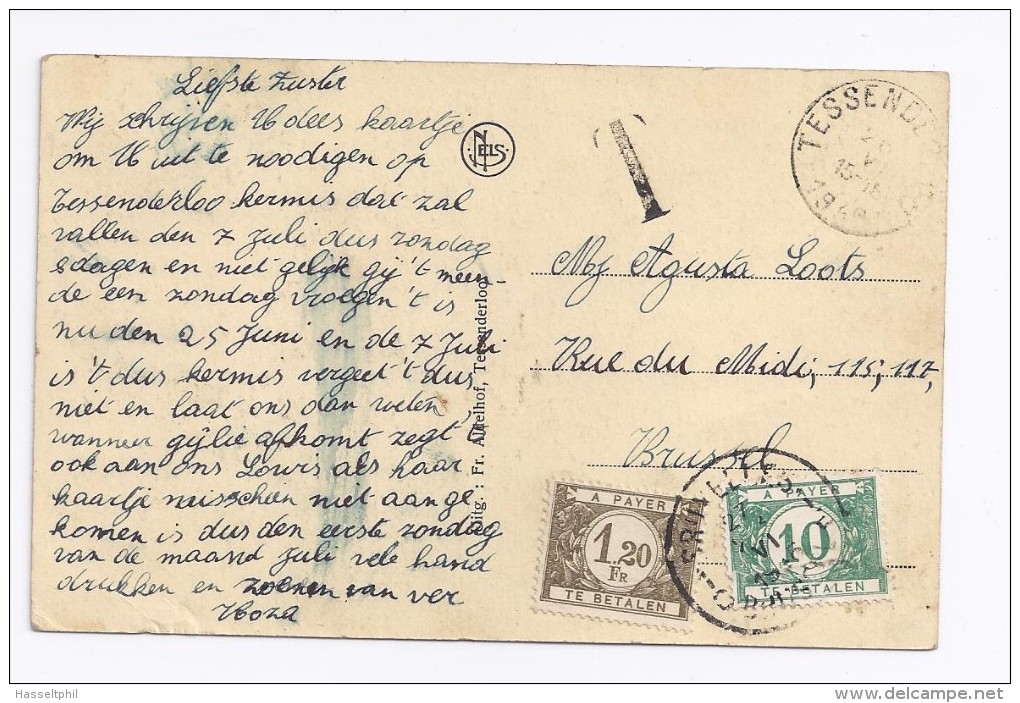 Liefste Zuster
Wij schrijven U dees kaartje
om U uit te noodigen op
Tessenderloo kermis dat zal
vallen den 7 Juli dus zondag
8dagen en niet gelijk gij 't meen-
de een zondag vroeger 't is
nu den 25 Juni en de 7 Juli
is 't dus kermis vergeet 't dus
niet en laat ons dan weten,
wanneer gijlie afkomt zegt
ook aan ons Lowis als haar
kaartje misschien niet aange
komen is dus den eerste zondag
van de maand Juli vele hand
drukken en zoenen van ver
NELS
Uitg. : Fr. Adelhof, Tessenderloo
T
TESSENDE
15-16
Mej Agusta Loots
Rue du Midi, 115, 117,
Brussel
A PAYER
1.20
FR
TE BETALEN
A PAYER
10
TE BETALEN
Hasseltphil
delcampe.net